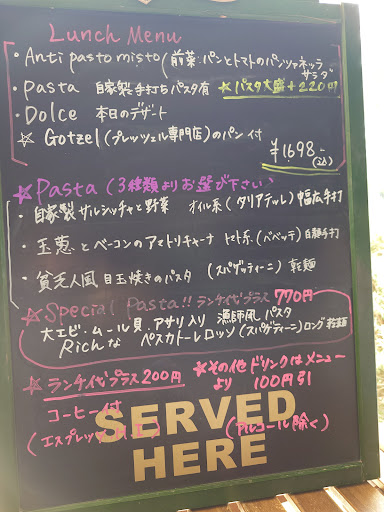 Lunch Menu
・Anti pasto misto (前菜.パンとトマトのパンツァネッラサラダ
・Pasta 自家製手打ちパスタ有 ☆パスタ大盛+220円
・Dolce 本日のデザート
☆ Gotzel (プレッツェル専門店)のパン付
¥1698-(込)
☆Pasta (3種類よりお選び下さい
・自家製サルシッチャと野菜 オイル系(タリアテッレ)幅広手打
・玉葱とベーコンのアマトリチャーナ トマト系(バベッテ)自家製手打
・貧乏人風目玉焼きのパスタ (スパゲッティーニ)乾麺
☆Special Pasta!! ランチ代プラス770円
大エビ・ムール貝.アサリ入り 漁師風パスタ
Richな ペスカトーレロッソ(スパゲティーニ)ロング乾麺
☆ランチ代プラス200円
コーヒー付
☆その他ドリンクはメニュー
より 100円引
(アルコール除く)
SERVED
HERE